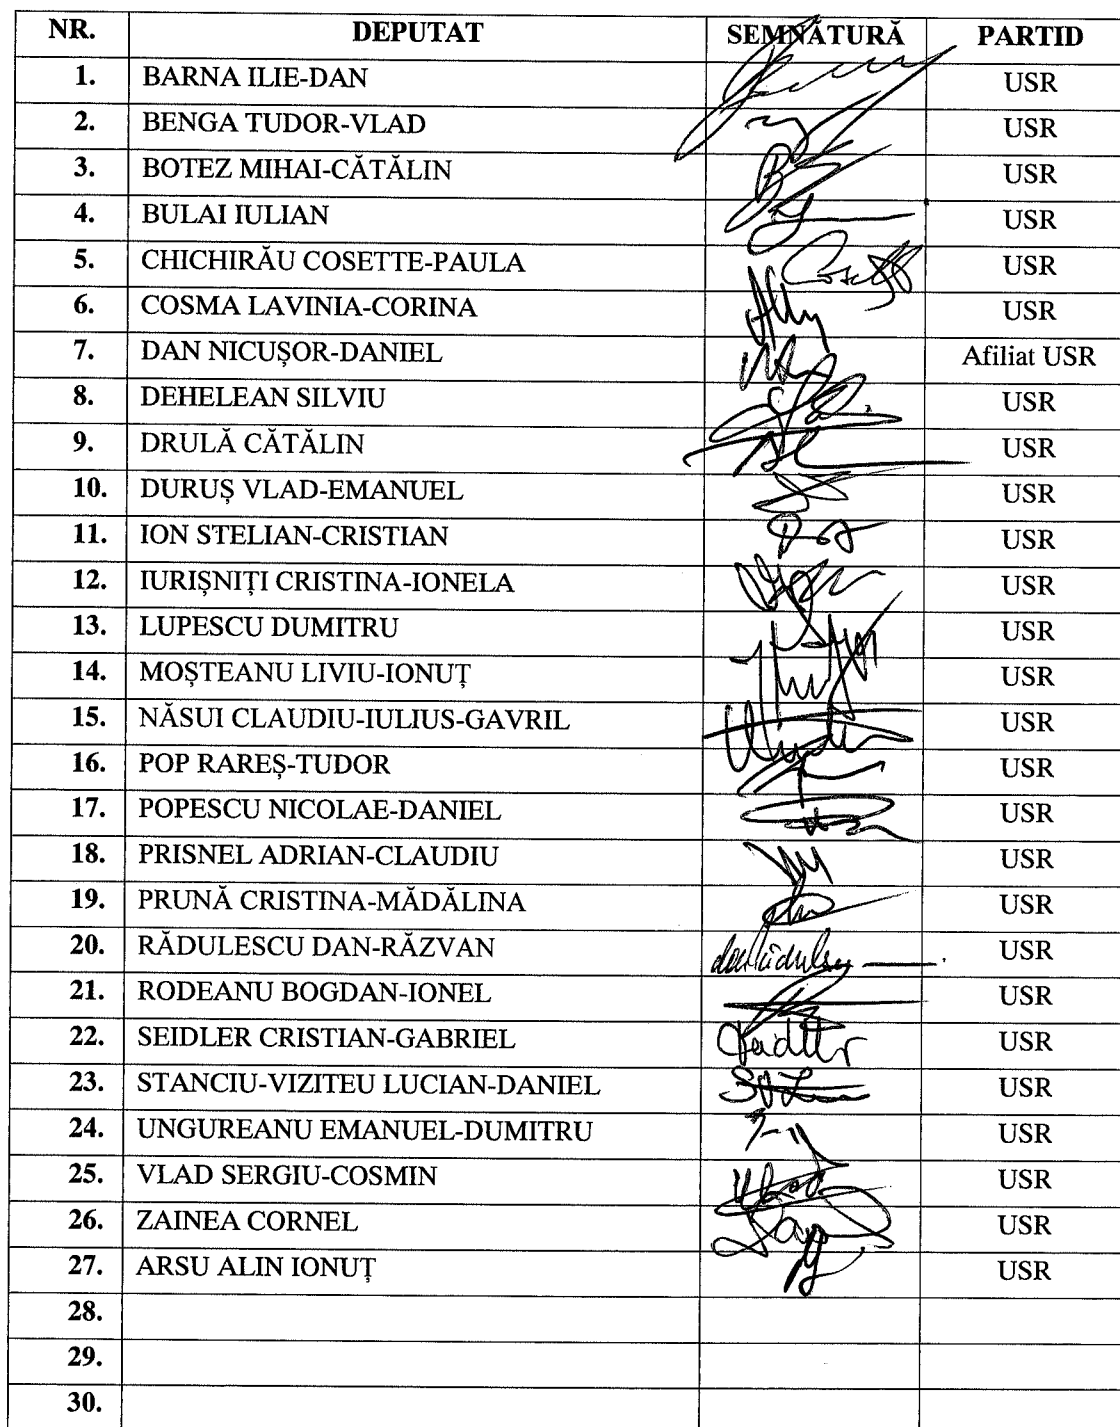 NR. DEPUTAT SEMNĂTURĂ PARTID
1. BARNA ILIE-DAN USR
2. BENGA TUDOR-VLAD USR
3. BOTEZ MIHAI-CĂTĂLIN USR
4. BULAI IULIAN USR
5. CHICHIRĂU COSETTE-PAULA USR
6. COSMA LAVINIA-CORINA USR
7. DAN NICUȘOR-DANIEL Afiliat USR
8. DEHELEAN SILVIU USR
9. DRULĂ CĂTĂLIN USR
10. DURUȘ VLAD-EMANUEL USR
11. ION STELIAN-CRISTIAN USR
12. IURIȘNIȚI CRISTINA-IONELA USR
13. LUPESCU DUMITRU USR
14. MOȘTEANU LIVIU-IONUȚ USR
15. NĂSUI CLAUDIU-IULIUS-GAVRIL USR
16. POP RAREȘ-TUDOR USR
17. POPESCU NICOLAE-DANIEL USR
18. PRISNEL ADRIAN-CLAUDIU USR
19. PRUNĂ CRISTINA-MĂDĂLINA USR
20. RĂDULESCU DAN-RĂZVAN USR
21. RODEANU BOGDAN-IONEL USR
22. SEIDLER CRISTIAN-GABRIEL USR
23. STANCIU-VIZITEU LUCIAN-DANIEL USR
24. UNGUREANU EMANUEL-DUMITRU USR
25. VLAD SERGIU-COSMIN USR
26. ZAINEA CORNEL USR
27. ARSU ALIN IONUȚ USR
28.
29.
30.